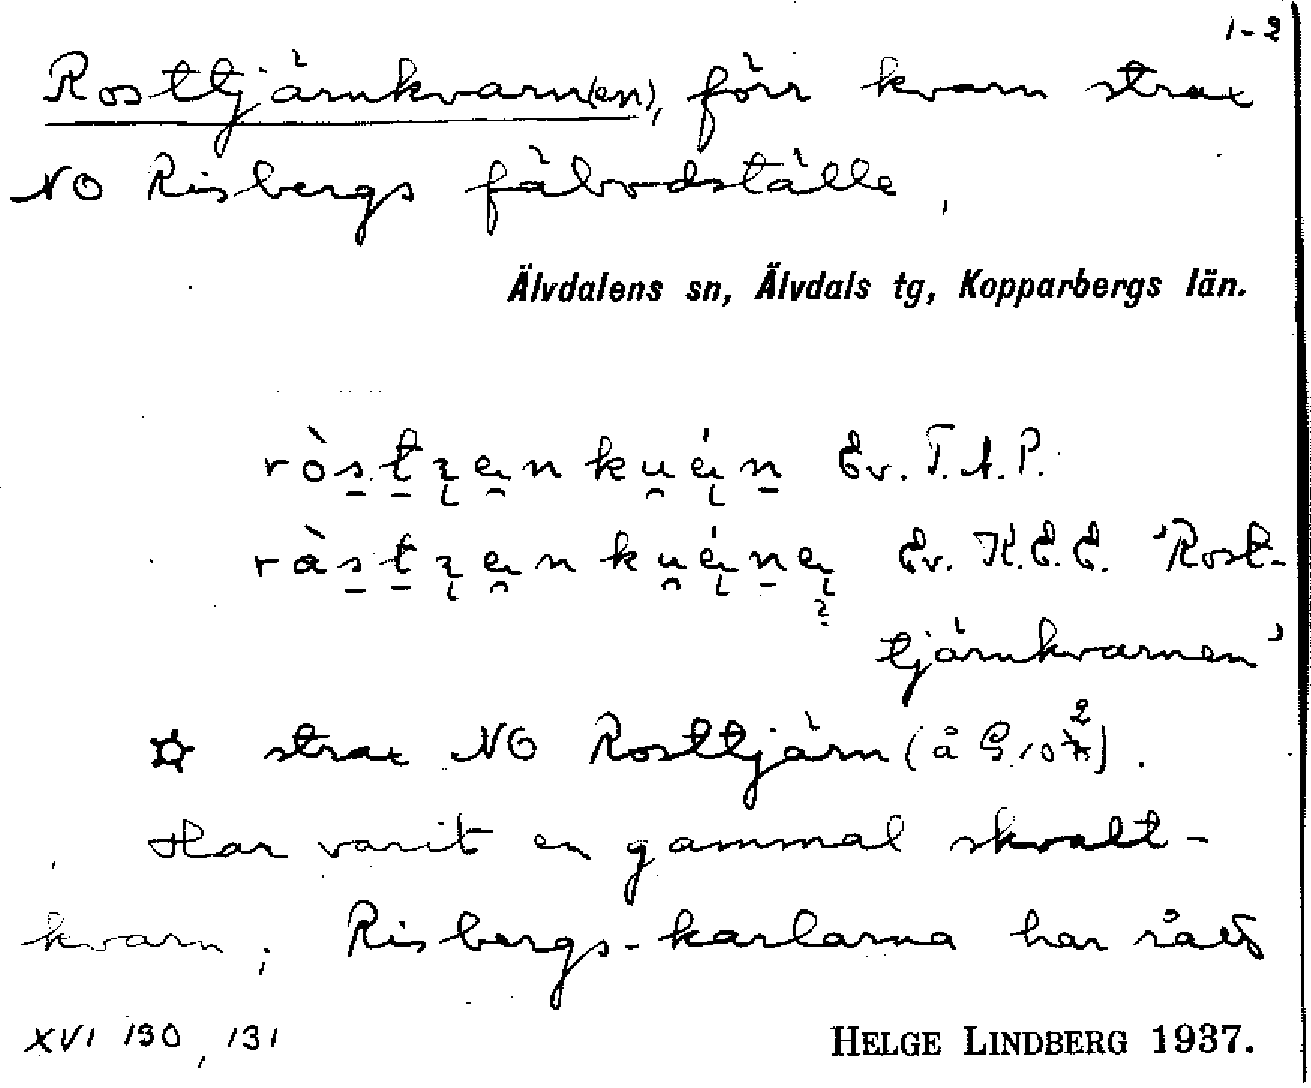 1-2
Rosttjärnkvarn(en), förr kvarn strax
NO Risbergs fäbodställe,
Älvdalens sn, Älvdals tg, Kopparbergs län.
Ev. T.A.P.
Ev. K.E.E. 'Rost-
tjärnkvarnen'
¤ strax NO Rosttjärn (å
Har varit en gammal skvalt-
kvarn; Risbergs-karlarna har rått
XVI 130, 131
HELGE LINDBERG 1937.